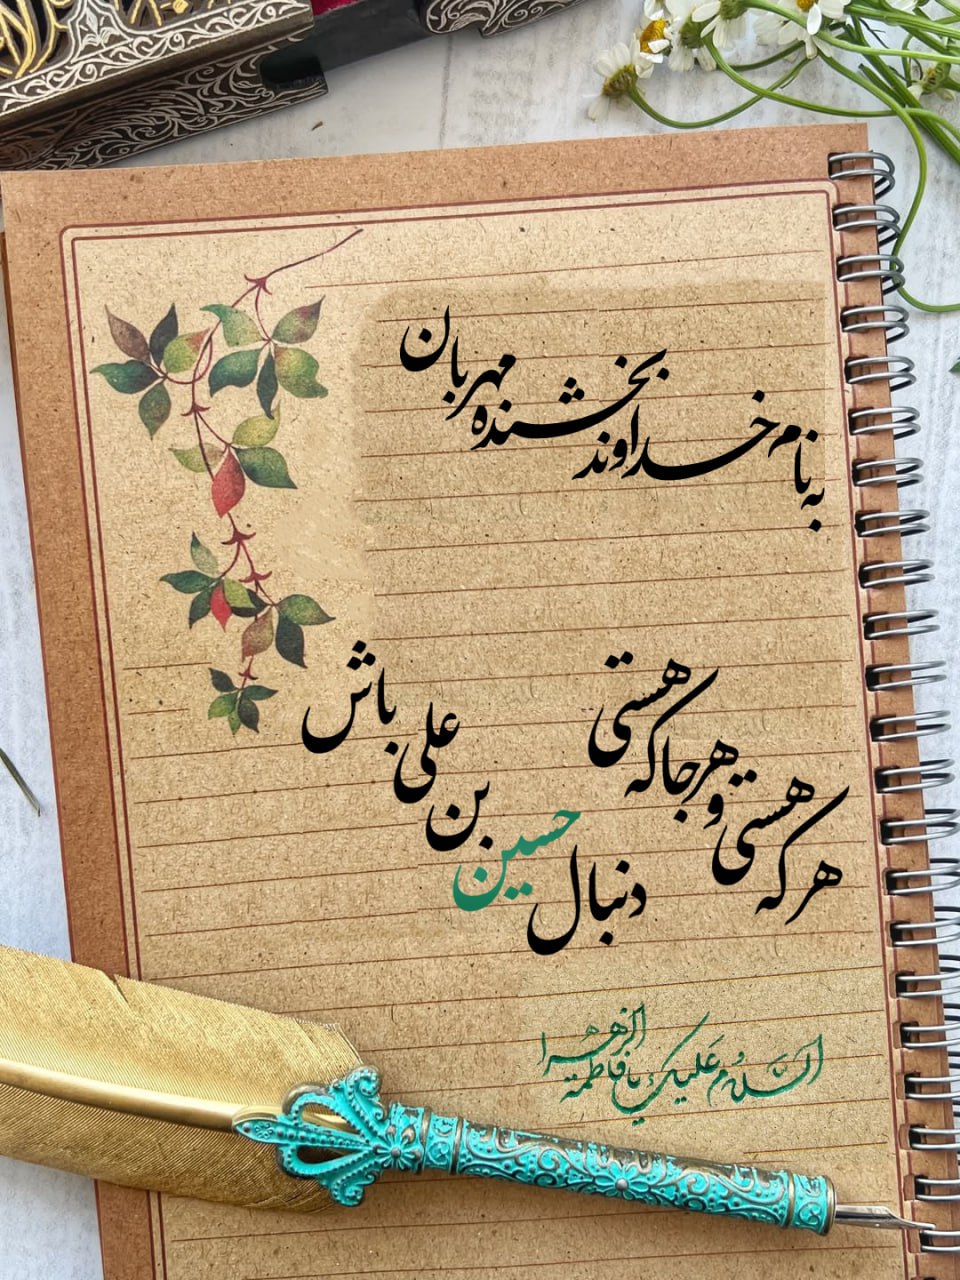 به نام خداوند بخشنده مهربان
هر که هستی و هر جا که هستی
دنبال حسین بن علی باش
السَّلامُ عَلیکِ یا فاطمة الزهرا